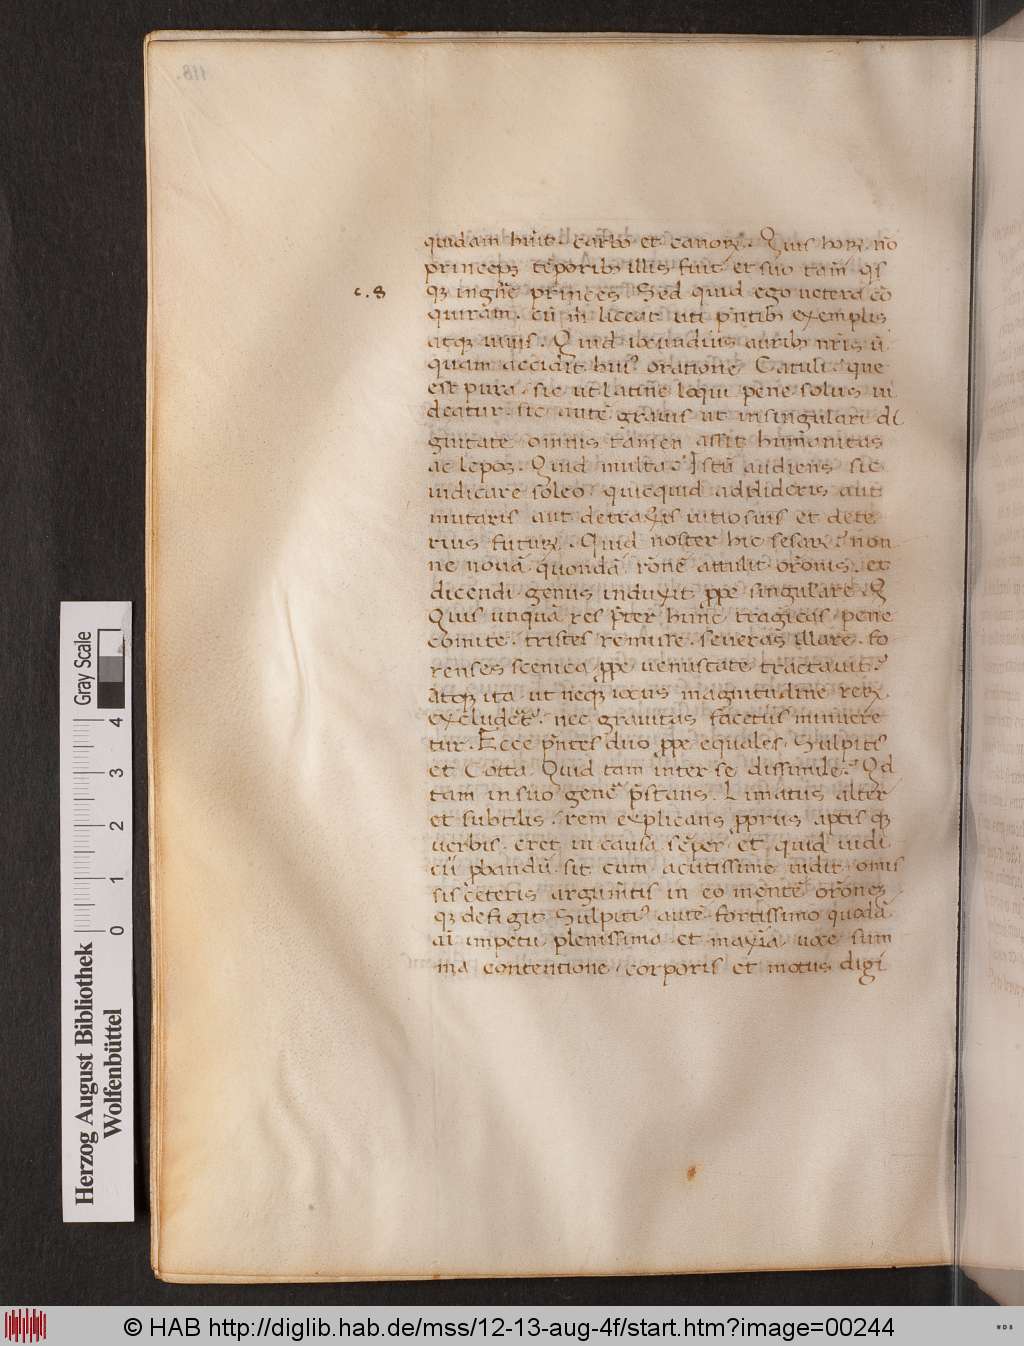 118.
quidam hn̄t. carbo et canoꝝ. Quis hoꝝ nō
princepꝫ tēporibꝫ illis fuit et suo tam̄ qͥs
c. 8
qꝫ in gn̄e princeps Sed quid ego vetera cō
quiram. cū m̄ liceat uti pn̄tibꝫ exemplis
atqꝫ uiuis. Quid iocundius auribꝫ nr̄is ū
quam accidit huiꝰ oratione Catuli. que
est pura sic ut latine loqui pene solus ui
deatur. sic autē grauis ut in singulari di
gnitate omnis tamen assit humanitas
ac lepos. Quid multa? Istū audiens sic
iudicare soleo. quicquid addideris aut
mutaris aut detraxeris uitiosius et dete
rius futuꝝ. Quid noster hic cesar? non
ne nouā quondā rōnē attulit orōnis. et
dicendi genus induxit ꝓpe singulare Q
Quis unquā res p̄ter hunc tragicas pene
comice. tristes remisse. seueras illare. fo
renses scenica ꝓpe uenustate tractauit?
Atqꝫ ita ut neqꝫ iocus magnitudine reꝝ
excluderet̄. nec grauitas facetiis minuere
tur. Ecce pn̄tes duo ꝓpe equales. Sulpitiꝰ
et Cotta. Quid tam inter se dissimile? Qd
tam in suo genē p̄stans. Limatus alter
et subtilis. rem explicans ꝓpriis aptisqꝫ
uerbis. eret in causa sēper et quid iudi
cii ꝓbandū sit cum acutissime uidit omis
sis ceteris argum̄tis in eo mentē orōneꝫ
qꝫ defigit Sulpitiꝰ autē fortissimo quodā
aī impetu plenissima et maxīa uoce sum
ma contentione corporis et motus digi
Gray Scale
0 1 2 3 4
Herzog August Bibliothek
Wolfenbüttel
© HAB http://diglib.hab.de/mss/12-13-aug-4f/start.htm?image=00244